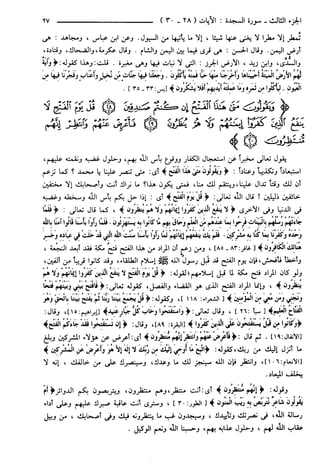 الجزء الثالث ـ سورة السجدة : الآيات (٢٨ - ٣٠) ٢٧
تمطر إلا مطرًا لا يغني عنها شيئًا ، إلا ما يأتيها من السيول. وعن ابن عباس ، ومجاهد : هي
أرض اليمن. وقال الحسن : هي قرى فيما بين اليمن والشام. وقال عكرمة، والضحاك، وقتادة،
والسدي، وابن زيد : الأرض الجرز : التي لا نبات فيها وهي مغبرة. قلت: وهذا كقوله: ﴿ وَآيَةٌ
لَهُمُ الْأَرْضُ الْمَيْتَةُ أَحْيَيْنَاهَا وَأَخْرَجْنَا مِنْهَا حَبًّا فَمِنْهُ يَأْكُلُونَ. وَجَعَلْنَا فِيهَا جَنَّاتٍ مِنْ نَخِيلٍ وَأَعْنَابٍ وَفَجَّرْنَا فِيهَا مِنَ
الْعُيُونِ. لِيَأْكُلُوا مِنْ ثَمَرِهِ وَمَا عَمِلَتْهُ أَيْدِيهِمْ أَفَلَا يَشْكُرُونَ ﴾ [يس: ٣٣ - ٣٥].
﴿ وَيَقُولُونَ مَتَى هَذَا الْفَتْحُ إِنْ كُنْتُمْ صَادِقِينَ ۝ قُلْ يَوْمَ الْفَتْحِ لَا
يَنْفَعُ الَّذِينَ كَفَرُوا إِيمَانُهُمْ وَلَا هُمْ يُنْظَرُونَ ۝ فَأَعْرِضْ عَنْهُمْ وَانْتَظِرْ إِنَّهُمْ
مُنْتَظِرُونَ ۝ ﴾
يقول تعالى مخبرًا عن استعجال الكفار ووقوع بأس الله بهم، وحلول غضبه ونقمته عليهم،
استبعادًا وتكذيبًا وعنادًا : ﴿ وَيَقُولُونَ مَتَى هَذَا الْفَتْحُ ﴾ أي: متى تنصر علينا يا محمد ؟ كما تزعم
أن لك وقتًا تدال علينا، وينتقم لك منا، فمتى يكون هذا؟ ما نراك أنت وأصحابك إلا مختفين
خائفين ذليلين ! قال الله تعالى: ﴿ قُلْ يَوْمَ الْفَتْحِ ﴾ أي : إذا حل بكم بأس الله وسخطه وغضبه
في الدنيا وفي الأخرى ﴿ لَا يَنْفَعُ الَّذِينَ كَفَرُوا إِيمَانُهُمْ وَلَا هُمْ يُنْظَرُونَ ﴾ ، كما قال تعالى : ﴿ فَلَمَّا
جَاءَتْهُمْ رُسُلُهُمْ بِالْبَيِّنَاتِ فَرِحُوا بِمَا عِنْدَهُمْ مِنَ الْعِلْمِ وَحَاقَ بِهِمْ مَا كَانُوا بِهِ يَسْتَهْزِئُونَ. فَلَمَّا رَأَوْا بَأْسَنَا قَالُوا آمَنَّا بِاللَّهِ
وَحْدَهُ وَكَفَرْنَا بِمَا كُنَّا بِهِ مُشْرِكِينَ. فَلَمْ يَكُ يَنْفَعُهُمْ إِيمَانُهُمْ لَمَّا رَأَوْا بَأْسَنَا سُنَّتَ اللَّهِ الَّتِي قَدْ خَلَتْ فِي عِبَادِهِ وَخَسِرَ
هُنَالِكَ الْكَافِرُونَ ﴾ [غافر: ٨٣ - ٨٥] ، ومن زعم أن المراد من هذا الفتح فتح مكة فقد أبعد النجعة ،
وأخطأ فأفحش، فإن يوم الفتح قد قبل رسول الله ﷺ إسلام الطلقاء، وقد كانوا قريبًا من ألفين،
ولو كان المراد فتح مكة لما قبل إسلامهم؛ لقوله: ﴿ قُلْ يَوْمَ الْفَتْحِ لَا يَنْفَعُ الَّذِينَ كَفَرُوا إِيمَانُهُمْ وَلَا هُمْ
يُنْظَرُونَ ﴾ ، وإنما المراد الفتح الذي هو القضاء والفصل، كقوله تعالى: ﴿ فَافْتَحْ بَيْنِي وَبَيْنَهُمْ فَتْحًا
وَنَجِّنِي وَمَنْ مَعِيَ مِنَ الْمُؤْمِنِينَ ﴾ [ الشعراء: ١١٨ ]، وكقوله: ﴿ قُلْ يَجْمَعُ بَيْنَنَا رَبُّنَا ثُمَّ يَفْتَحُ بَيْنَنَا بِالْحَقِّ وَهُوَ
الْفَتَّاحُ الْعَلِيمُ ﴾ [ سبأ : ٢٦ ] ، وقال تعالى : ﴿ وَاسْتَفْتَحُوا وَخَابَ كُلُّ جَبَّارٍ عَنِيدٍ ﴾ [إبراهيم: ١٥]، وقال:
﴿ وَكَانُوا مِنْ قَبْلُ يَسْتَفْتِحُونَ عَلَى الَّذِينَ كَفَرُوا ﴾ [البقرة: ٨٩]، وقال: ﴿ إِنْ تَسْتَفْتِحُوا فَقَدْ جَاءَكُمُ الْفَتْحُ ﴾
[الأنفال: ١٩]. ثم قال : ﴿ فَأَعْرِضْ عَنْهُمْ وَانْتَظِرْ إِنَّهُمْ مُنْتَظِرُونَ ﴾ أي: أعرض عن هؤلاء المشركين وبلغ
ما أنزل إليك من ربك، كقوله: ﴿ اتَّبِعْ مَا أُوحِيَ إِلَيْكَ مِنْ رَبِّكَ لَا إِلَهَ إِلَّا هُوَ وَأَعْرِضْ عَنِ الْمُشْرِكِينَ ﴾
[الأنعام: ١٠٦]، وانتظر فإن الله سينجز لك ما وعدك، وسينصرك على من خالفك ، إنه لا
يخلف الميعاد.
وقوله : ﴿ إِنَّهُمْ مُنْتَظِرُونَ ﴾ أي: أنت منتظر، وهم منتظرون، ويتربصون بكم الدوائر ﴿ أَمْ
يَقُولُونَ شَاعِرٌ نَتَرَبَّصُ بِهِ رَيْبَ الْمَنُونِ ﴾ [ الطور: ٣٠ ] ، وسترى أنت عاقبة صبرك عليهم وعلى أداء
رسالة الله، في نصرتك وتأييدك ، وسيجدون غب ما ينتظرونه فيك وفي أصحابك ، من وبيل
عقاب الله لهم ، وحلول عذابه بهم، وحسبنا الله ونعم الوكيل .